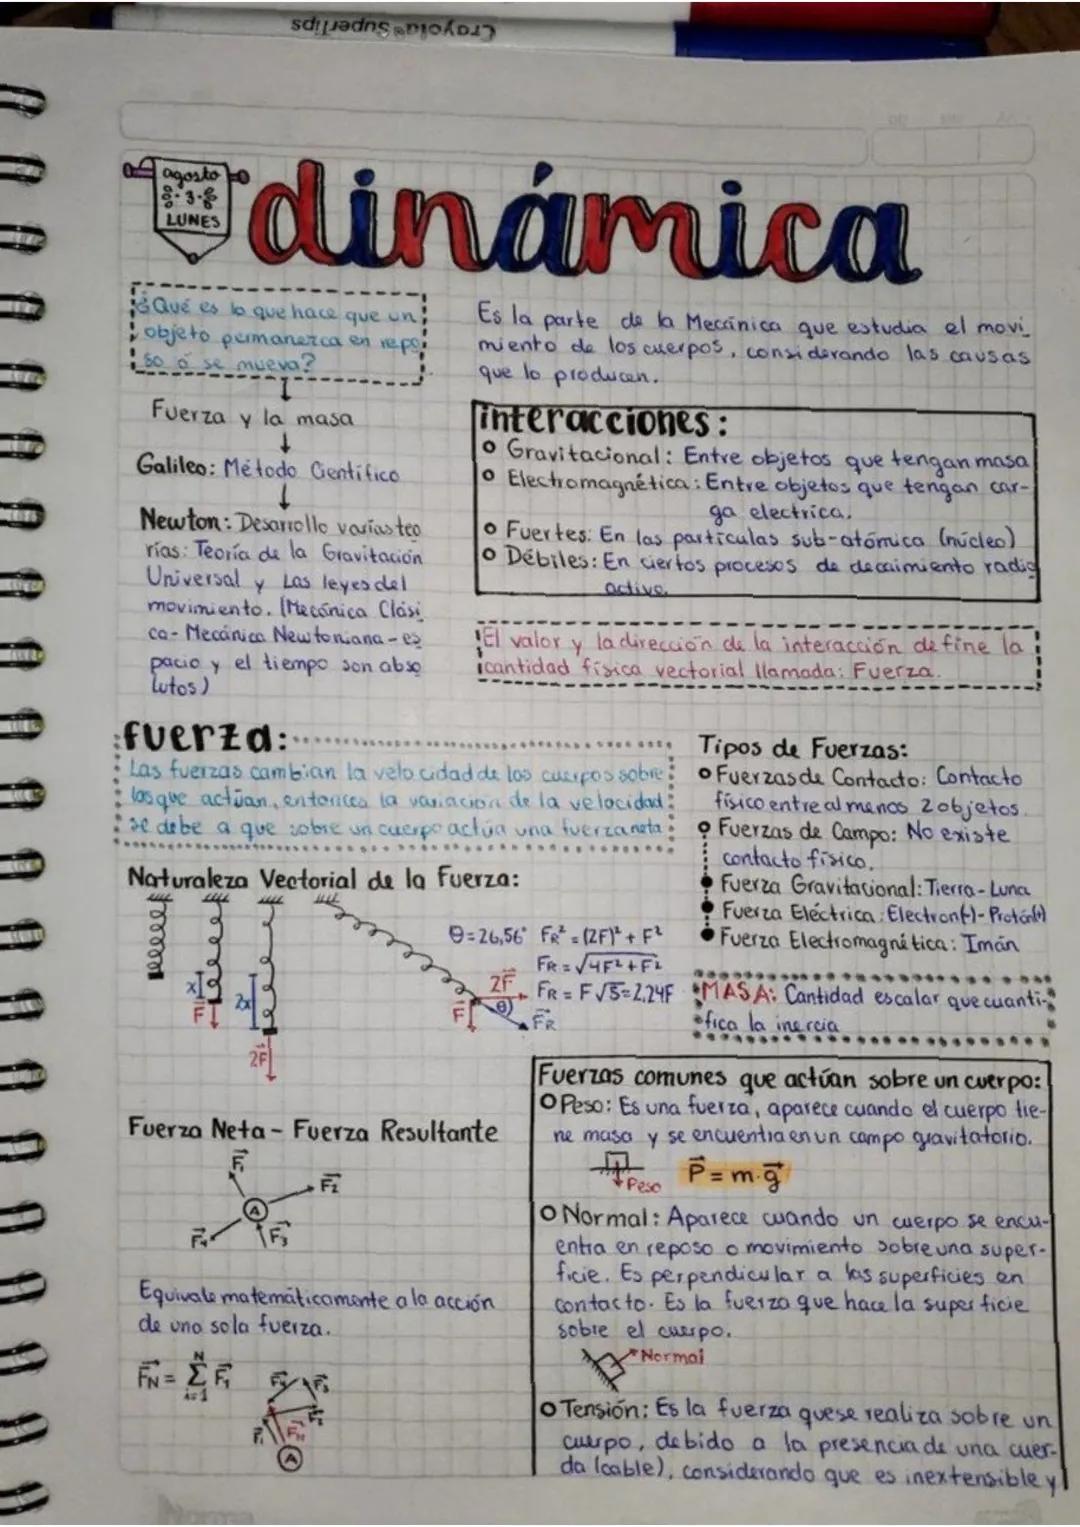 Crayola® SuperTips
agosto
3
LUNES
dinámica
¿Qué es lo que hace que un
objeto permanezca en repo
so ó se mueva?
Fuerza y la masa
Galileo: Método Científico
Newton: Desarrollo varias teo
rías: Teoría de la Gravitación
Universal y Las leyes del
movimiento. (Mecánica Clási
ca - Mecánica Newtoniana - es
pacio y el tiempo son abso
lutos)
Es la parte de la Mecánica que estudia el movi_
miento de los cuerpos, considerando las causas
que lo producen.
interacciones:
Gravitacional: Entre objetos que tengan masa
Electromagnética: Entre objetos que tengan car-
ga electrica.
Fuertes: En las partículas sub-atómica (núcleo)
Débiles: En ciertos procesos de decaimiento radio
activo.
El valor y la dirección de la interacción define la
cantidad física vectorial llamada: Fuerza.
fuerza:
Las fuerzas cambian la velocidad de los cuerpos sobre
los que actúan, entonces la variación de la velocidad
se debe a que sobre un cuerpo actúa una fuerza neta
Naturaleza Vectorial de la Fuerza:
x
F
2x
2F
θ=26,56°
2F
F
θ
FR
FR² = (2F)² + F²
FR = √4F² + F²
FR = F√5 = 2,24F
Tipos de Fuerzas:
Fuerzas de Contacto: Contacto
físico entre al menos 2 objetos.
Fuerzas de Campo: No existe
contacto físico.
Fuerza Gravitacional: Tierra - Luna
Fuerza Eléctrica: Electron(-) - Protón(+)
Fuerza Electromagnética: Imán
MASA: Cantidad escalar que cuanti-
fica la inercia
Fuerza Neta - Fuerza Resultante
F₁
F₂
A
F₄
F₃
Equivale matemáticamente a la acción
de una sola fuerza.
FN = N Σ i=1 F₁
F₄
F₃
F₂
F₁
FN
A
Fuerzas comunes que actúan sobre un cuerpo:
Peso: Es una fuerza, aparece cuando el cuerpo tie-
ne masa y se encuentra en un campo gravitatorio.
Peso
P = m·g
Normal: Aparece cuando un cuerpo se encu-
entra en reposo o movimiento sobre una super-
ficie. Es perpendicular a las superficies en
contacto. Es la fuerza que hace la superficie
sobre el cuerpo.
Normal
Tensión: Es la fuerza que se realiza sobre un
cuerpo, debido a la presencia de una cuer-
da (cable), considerando que es inextensible y